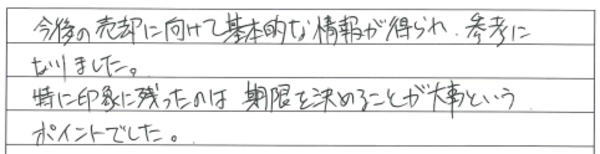 今後の売却に向けて基本的な情報が得られ、参考に
なりました。
特に印象に残ったのは 期限を決めることが大事という
ポイントでした。